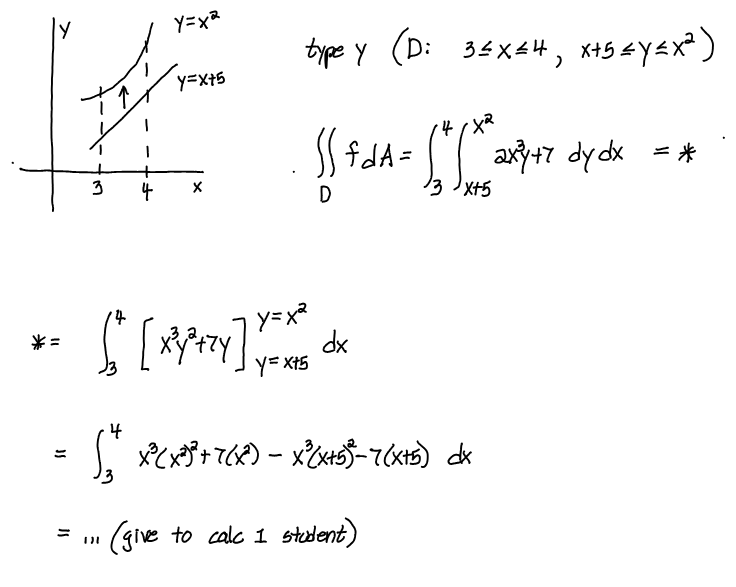 y
y=x²
y=x+5
3 4 x
type y (D: 3≤x≤4, x+5≤y≤x²)
∬_D f dA = ∫_3^4 ∫_{x+5}^{x²} 2x³y+7 dy dx = *
* = ∫_3^4 [x³y²+7y]_{y=x+5}^{y=x²} dx
= ∫_3^4 x³(x²)²+7(x²) − x³(x+5)²−7(x+5) dx
= ... (give to calc 1 student)